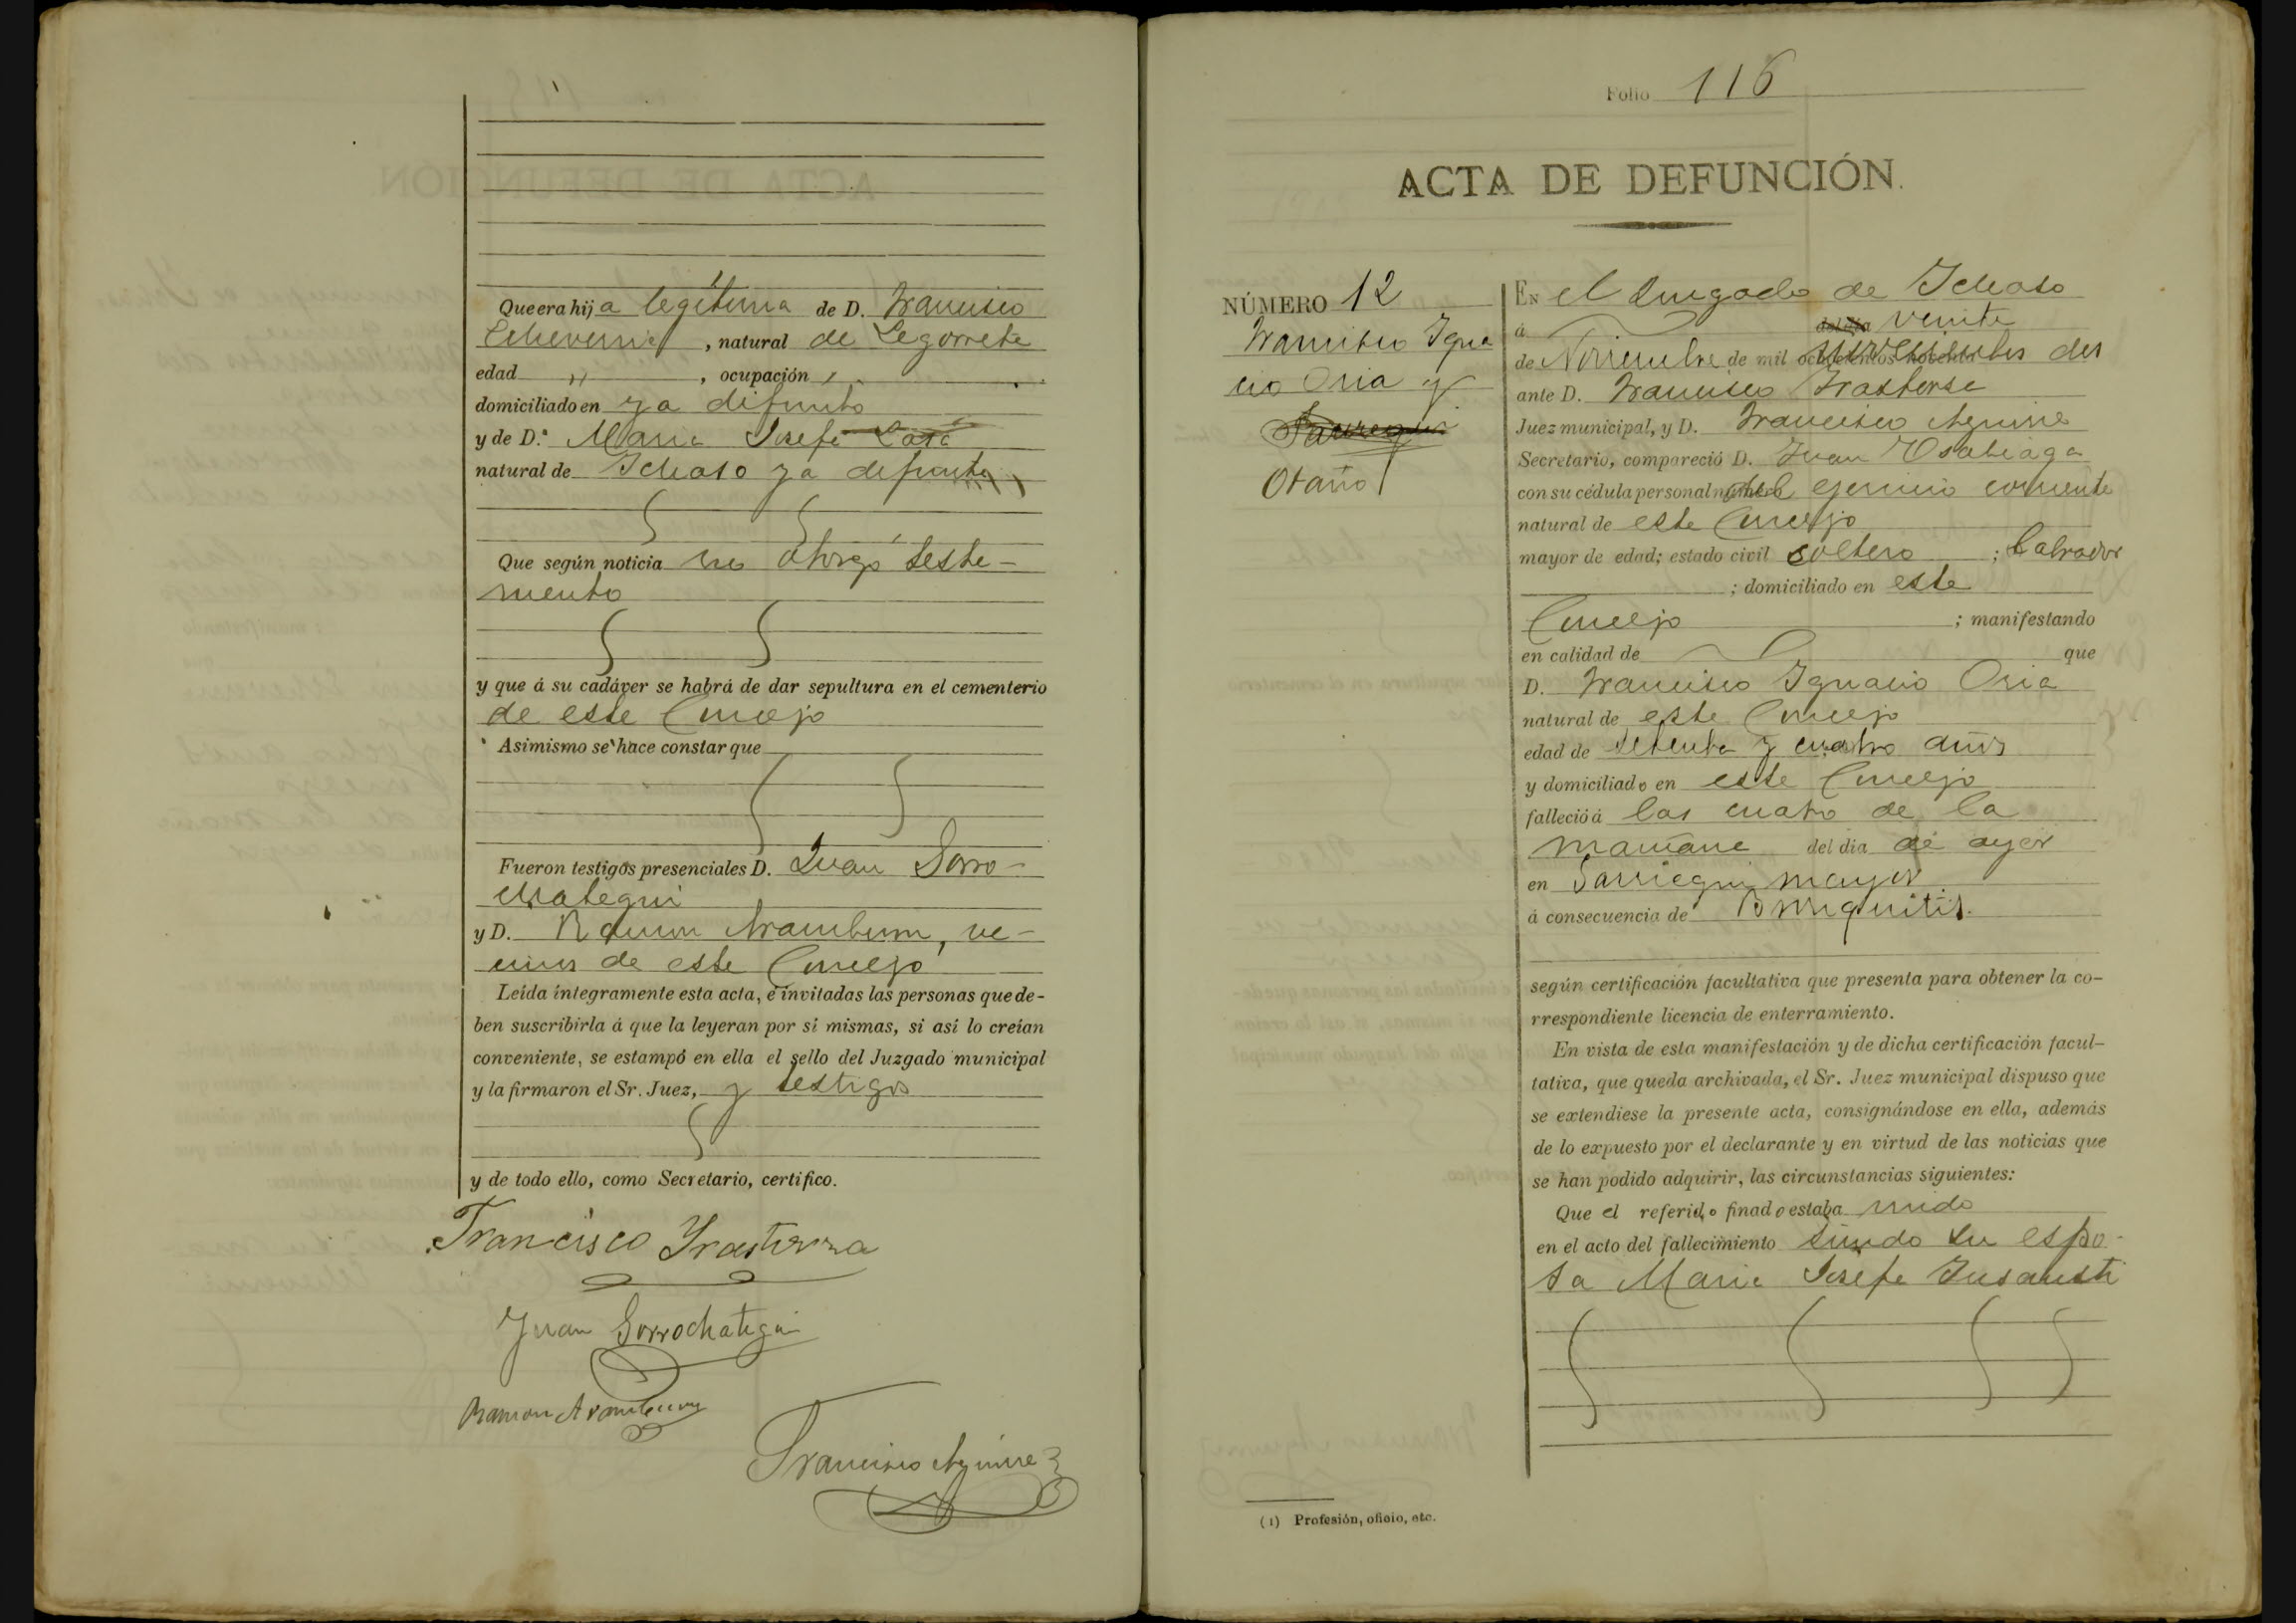 Que era hija legítima de D. Francisco
Echeverria, natural de Legorreta
edad " , ocupación "
domiciliado en ya difunto
y de D.ª Maria Josefa Lasa
natural de Ichaso ya difunta
Que según noticia no otorgó testa-
mento
y que á su cadáver se habrá de dar sepultura en el cementerio
de este Concejo
Asimismo se hace constar que
Fueron testigos presenciales D. Juan Sorro-
chategui
y D. Ramon Aramburu, ve-
cinos de este Concejo
Leída íntegramente esta acta, é invitadas las personas que de-
ben suscribirla á que la leyeran por sí mismas, si así lo creían
conveniente, se estampó en ella el sello del Juzgado municipal
y la firmaron el Sr. Juez, y testigos
y de todo ello, como Secretario, certifico.
Francisco Yrastorza
Juan Sorrochategui
Ramon Aramburu
Francisco Aguirre
Folio 116
ACTA DE DEFUNCIÓN.
NÚMERO 12
Francisco Igna
cio Oria y
Otaño
EN el Juzgado de Ichaso
á del dia veinte
de Noviembre de mil ochocientos noventa novecientos dos
ante D. Francisco Irastorza
Juez municipal, y D. Francisco Aguirre
Secretario, compareció D. Juan Osatiaga
con su cédula personal número del egercicio corriente
natural de este Concejo
mayor de edad; estado civil soltero ; labrador
; domiciliado en este
Concejo ; manifestando
en calidad de que
D. Francisco Ignacio Oria
natural de este Concejo
edad de setenta y cuatro años
y domiciliado en este Concejo
falleció á las cuatro de la
mañana del dia de ayer
en Sarriegui mayor
á consecuencia de Bronquitis.
según certificación facultativa que presenta para obtener la co-
rrespondiente licencia de enterramiento.
En vista de esta manifestación y de dicha certificación facul-
tativa, que queda archivada, el Sr. Juez municipal dispuso que
se extendiese la presente acta, consignándose en ella, además
de lo expuesto por el declarante y en virtud de las noticias que
se han podido adquirir, las circunstancias siguientes:
Que el referido finado estaba unido
en el acto del fallecimiento siendo su espo-
sa Maria Josefa Insausti
(1) Profesión, oficio, etc.